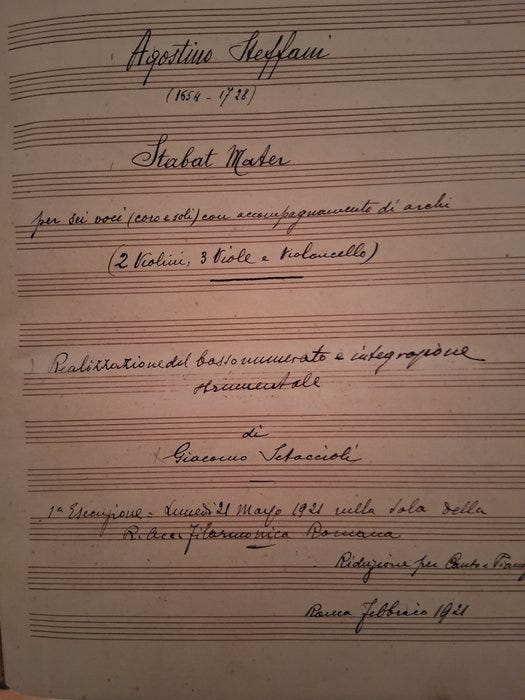 Agostino Steffani
(1654 - 1728)
Stabat Mater
per sei voci (coro e soli) con accompagnamento di archi
(2 Violini, 3 Viole e Violoncello)
Realizzazione del basso numerato e integrazione
strumentale
di
Giacomo Setaccioli
1ª Esecuzione = Lunedì 21 Marzo 1921 nella Sala della
R. Acc. Filarmonica Romana
Riduzione per Canto e Piano
Roma Febbraio 1921